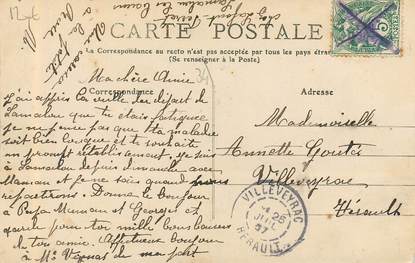 CARTE POSTALE
La Correspondance au recto n'est pas acceptée par tous les pays étran
(Se renseigner à la Poste)
Correspondance
Adresse
Ma chère Amie
J'ai appris la veille de départ de
Lamalou que tu étais fatiguée
je ne pense pas que ta maladie
soit bien longue et te souhaite
un prompt rétablissement. je suis
à Lamalou depuis dimanche avec
Maman et je ne sais quand nous
repartirons. Donne le bonjour
à Papa Maman et Georges et
pour toi mille bons baisers
de ton amie. Affectueux bonjour
à Me de ma part
Mademoiselle
Annette
Villeveyrac
Hérault
VILLEVEYRAC
25
JUIL
07
HERAULT
5